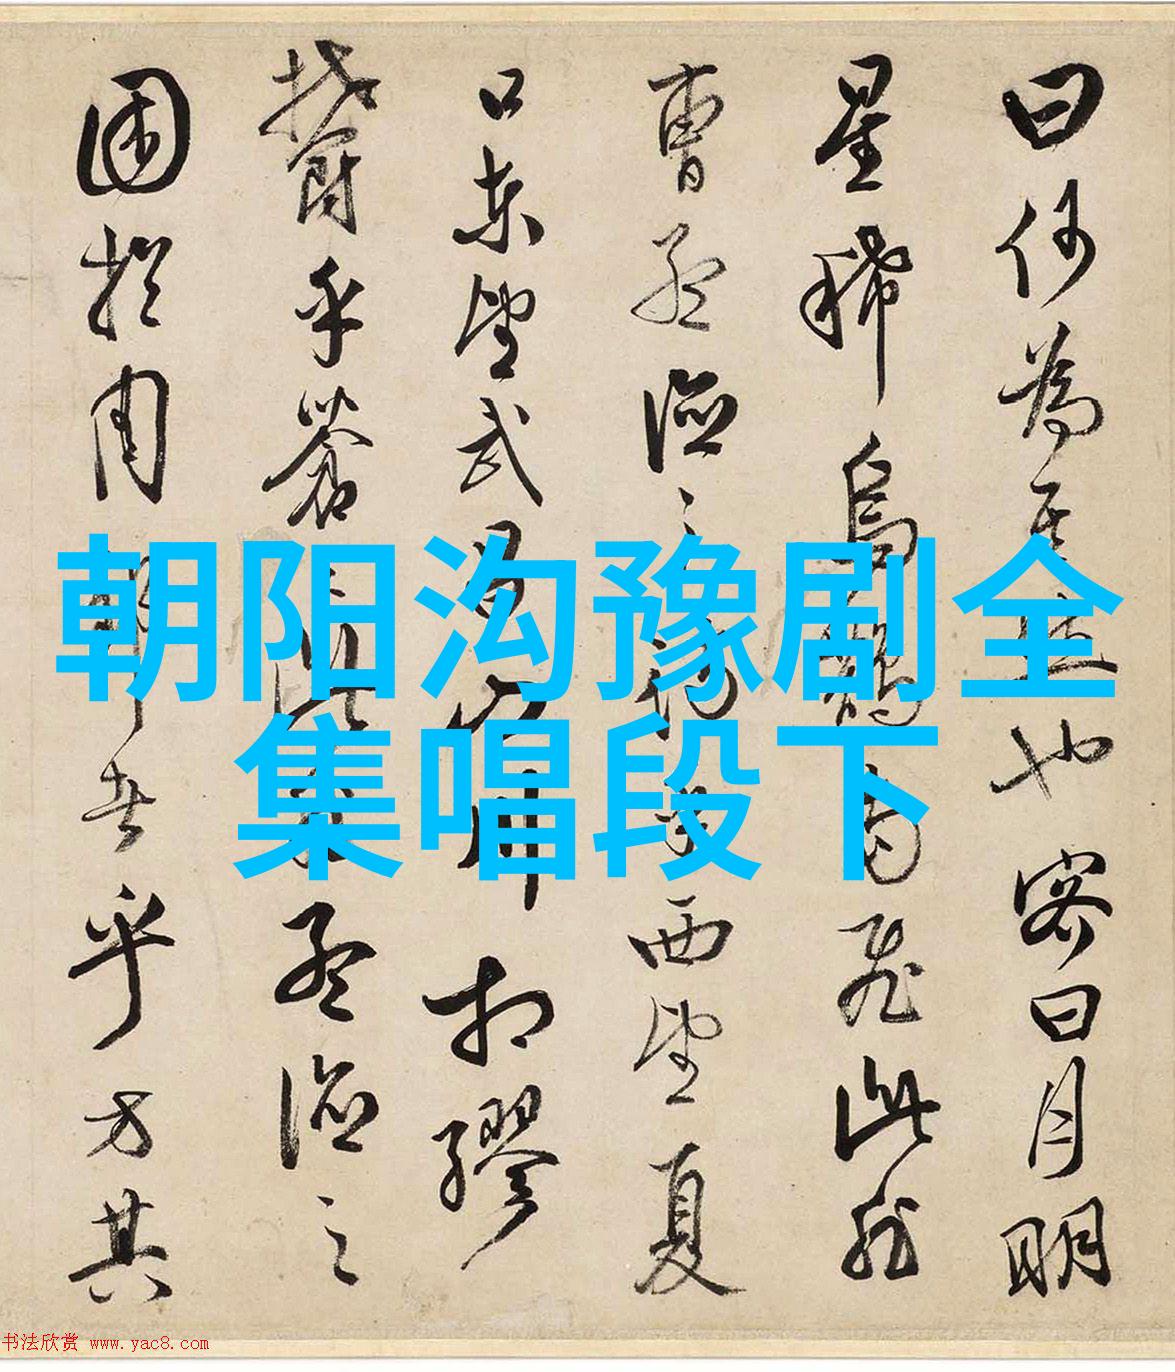 曰何為其然也客曰月明
星稀烏鵲南飛此非
曹孟德之詩乎西望夏
口東望武昌山川相繆
鬱乎蒼〻此非孟德之
困於周郎者乎方其
朝阳沟豫剧全
集唱段下
书法欣赏 www.yac8.com